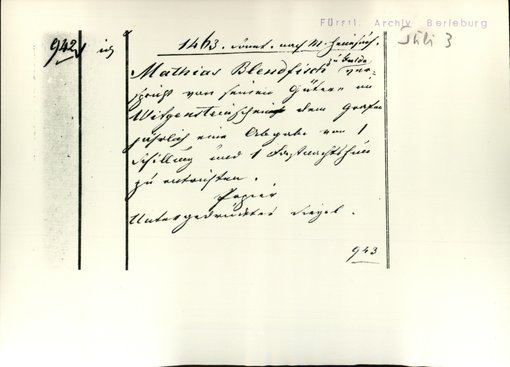 Fürstl. Archiv Berleburg
Juli 3
942
1463. Sonnt. nach
zu Fulda
Mathias Blendfisch ver-
spricht von seinen Gütern im
Witgensteinschen dem Grafen
jährlich eine Abgabe von 1
Schilling und 1 Fastnachtshuhn
zu entrichten.
Papier
Untergedrucktes Siegel.
943